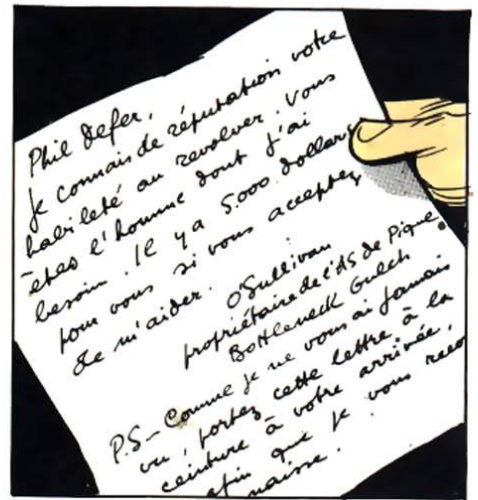 Phil Defer,
Je connais de réputation votre
habileté au revolver. Vous
êtes l'homme dont j'ai
besoin. Il y a 5.000 dollars
pour vous si vous acceptez
de m'aider.
O'Sullivan
propriétaire de l'AS de Pique.
Bottleneck Gulch
P.S - Comme je ne vous ai jamais
vu, portez cette lettre à la
ceinture à votre arrivée,
afin que je vous reco
naisse.